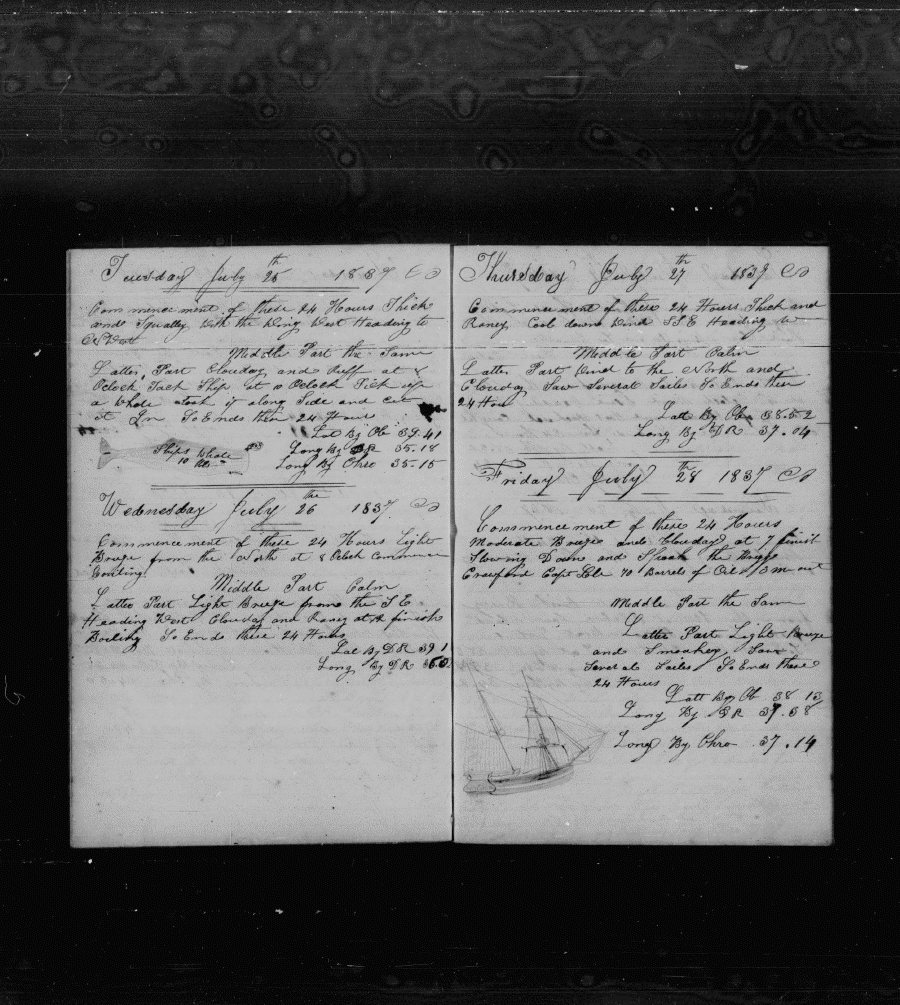 Tuesday July 25th 1837
Commencement of these 24 Hours Thick
and Squally with the Wing West Heading to
Middle Part the Same
Latter Part Clouday and Ruff at 8
Oclock Tack Ship at 10 Oclock Pick up
a Whale took it along Side and cut
it In So Ends these 24 Hours
Lat By Ob 39.41
Long By DR 35.18
Long By Chro 35.15
Ships Whale
10
Wednesday July 26the 1837
Commencement of these 24 Hours Light
Breeze from the North at 8 Oclock Commence
Middle Part Calm
Latter Part Light Breeze from the S E
Heading West Clouday and Raney at finish
Boiling So Ends these 24 Hours
Lat By DR 39 1
Long By DR
Thursday July 27th 1837
Commencement of these 24 Hours Thick and
Raney Cool down Wind S S E Heading
Middle Part Calm
Latter Part Wind to the North and
Clouday Saw Several Sailes So Ends these
24 Hours
Latt By Ob 38.52
Long By DR 37.04
Friday July 28th 1837
Commencement of these 24 Hours
Moderate Breeze and Clouday at 7 finish
Stowing Down and Speak the
Crawford Capt 70 Barrels of Oil out
Middle Part the Same
Latter Part Light Breeze
and Smokey Saw
Severals Sailes So Ends these
24 Hours
Latt By Ob 38 13
Long By DR 37.38
Long By Chro 37.14